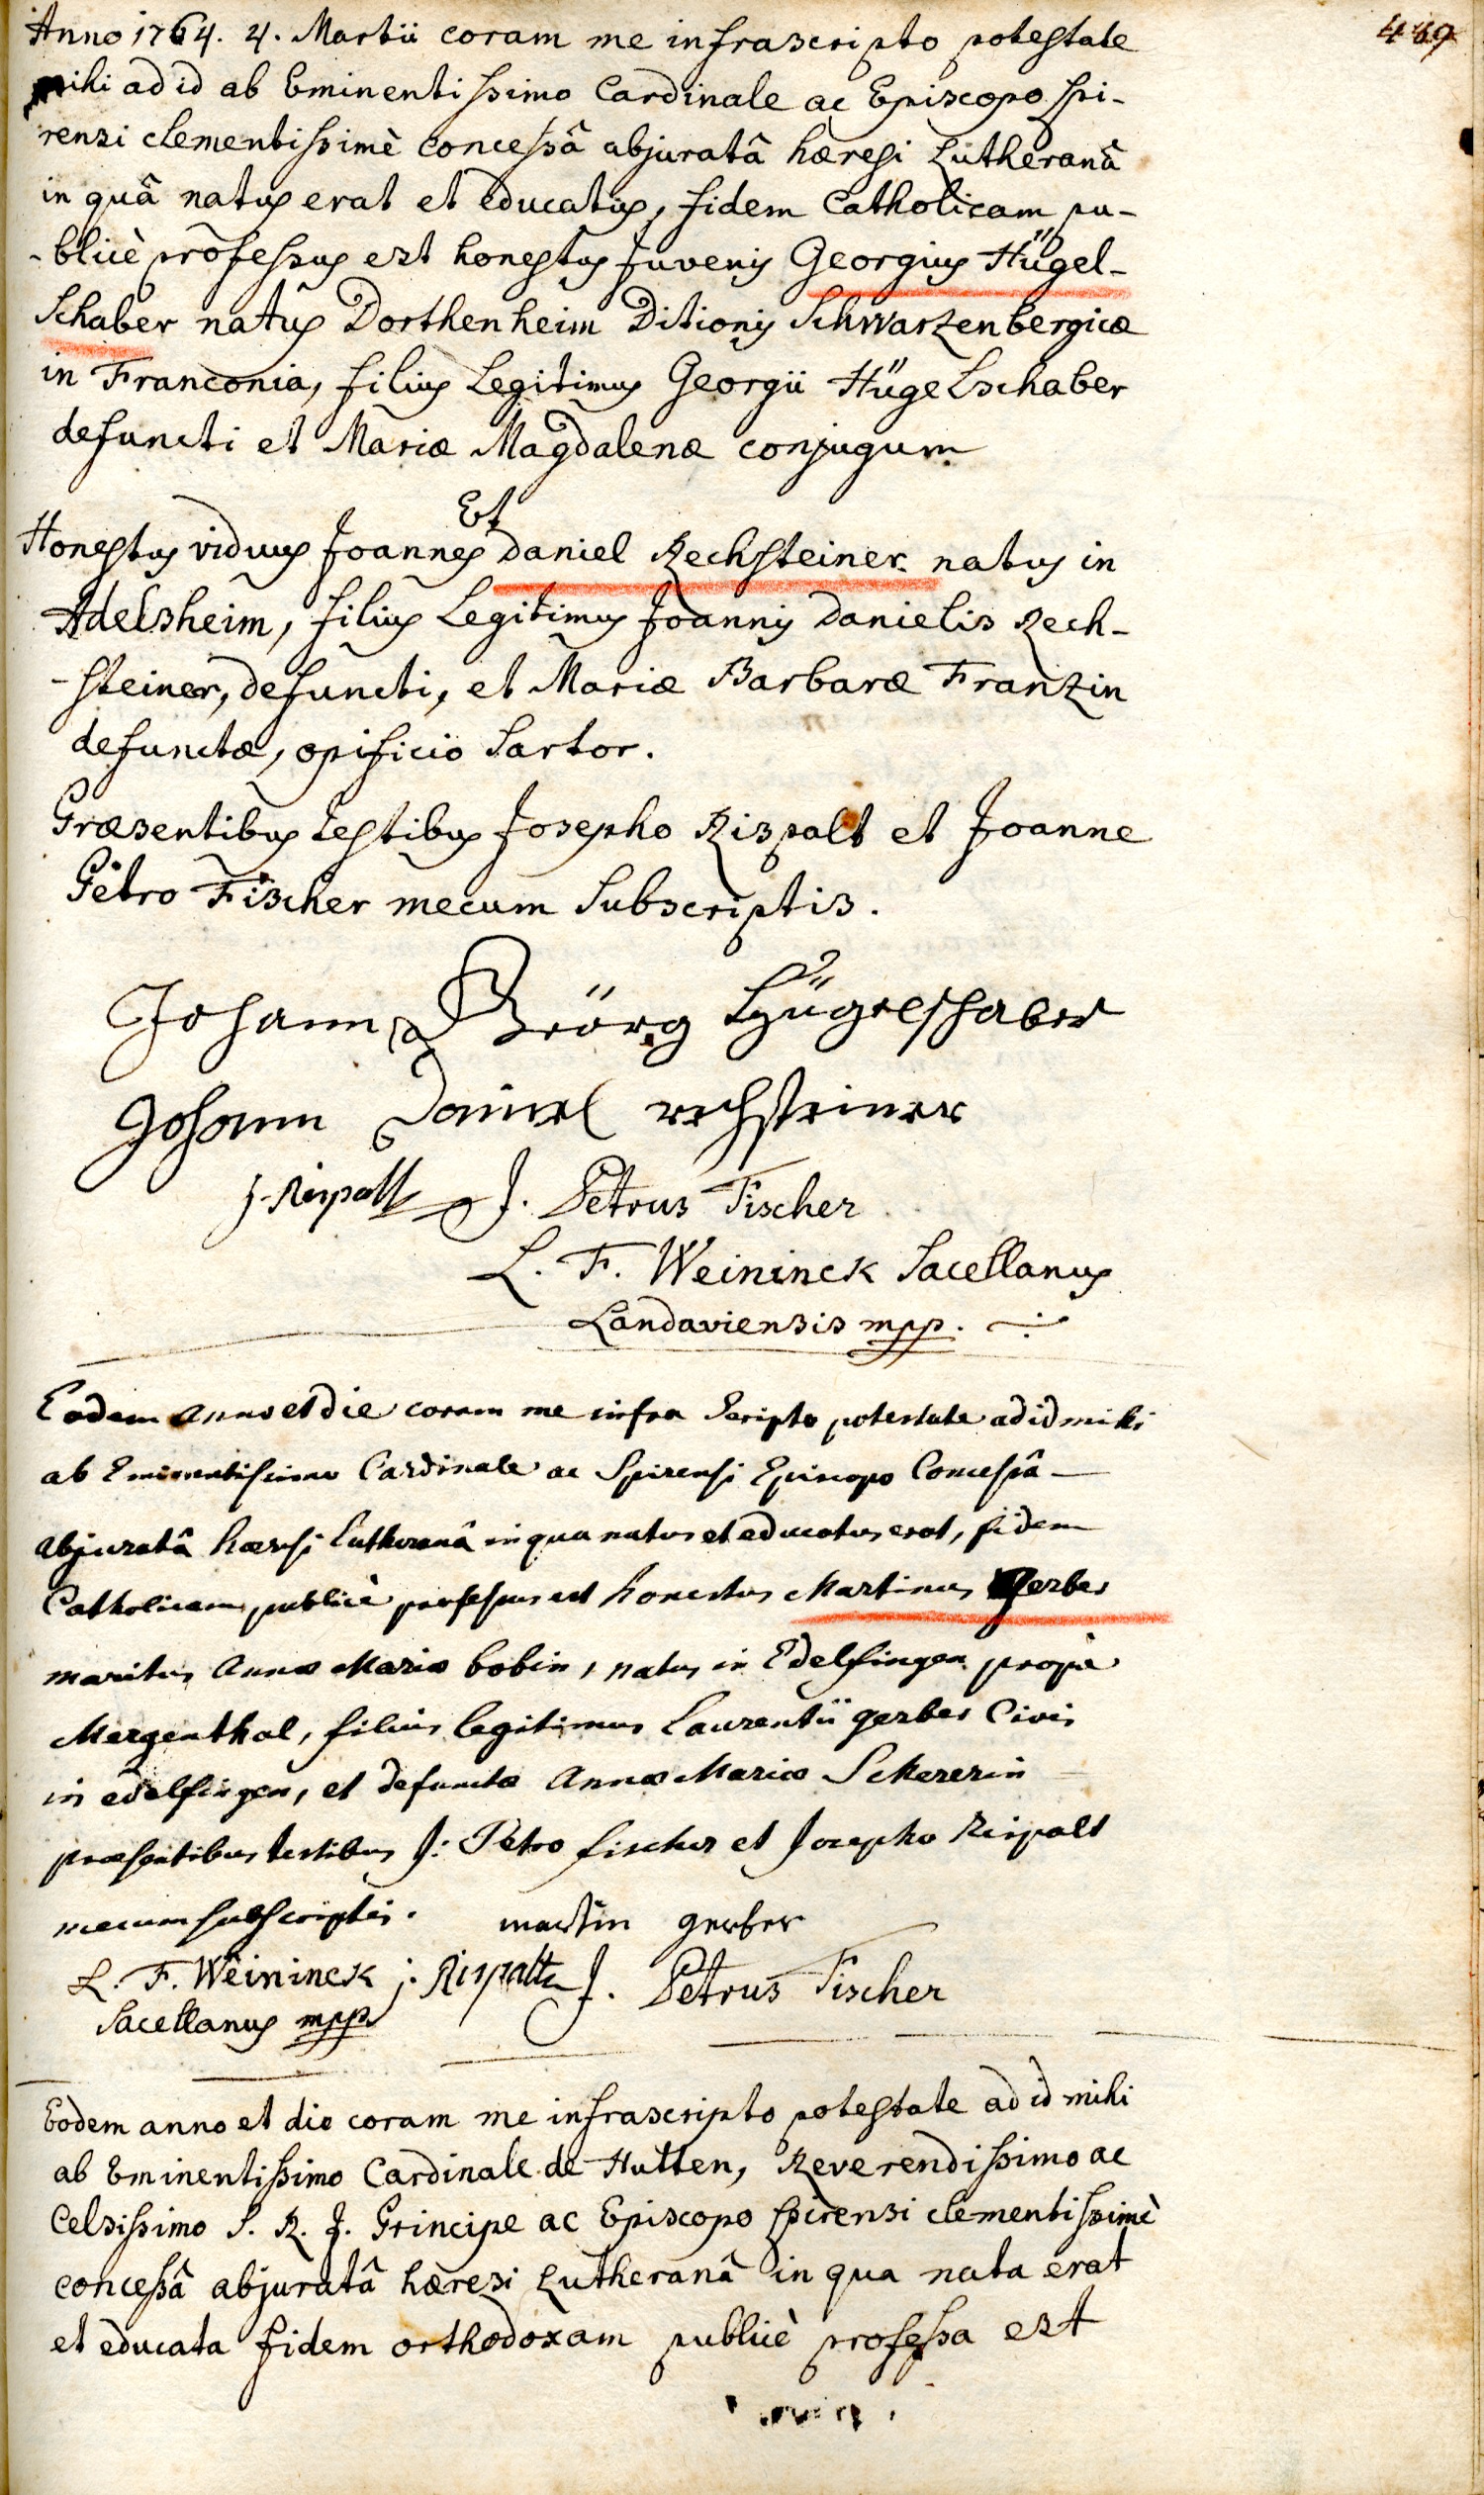 449
Anno 1764. 4. Martii coram me infrascripto potestate
mihi ad id ab Eminentissimo Cardinale ac Episcopo Spi-
rensi clementissimè concessâ abjuratâ hæresi Lutheranâ
in quâ natus erat et educatus, fidem Catholicam pu-
-blicè professus est honestus Juvenis Georgius Hügel-
Schaber natus Dorthenheim Ditionis Schwarzenbergicæ
in Franconia, filius Legitimus Georgii Hügelschaber
defuncti et Mariæ Magdalenæ conjugum
Et
Honestus viduus Joannes Daniel Rechsteiner natus in
Adelsheim, filius Legitimus Joannis Danielis Rech-
-steiner, defuncti, et Mariæ Barbaræ Franzin
defunctæ, opificio Sartor.
Præsentibus Testibus Josepho Rispalt et Joanne
Petro Fischer mecum Subscriptis.
Johann Geörg Hügelschaber
Johann Daniel rechsteiner
j. Rispalt J. Petrus Fischer
L. F. Weininck Sacellanus
Landaviensis mpp.
Eodem Anno et die coram me infra Scripto potestate ad id mihi
ab Eminentissimo Cardinale ac Spirensi Episcopo Concessâ
abjuratâ hæresi Lutheranâ in qua natus et educatus erat, fidem
Catholicam publicè professus est honestus Martinus Gerber
maritus Annæ Mariæ bobin, natus in Edelfingen propè
Mergenthal, filius legitimus Laurentii gerber Civis
in edelfingen, et defunctæ Annæ Mariæ Schererin
præsentibus testibus J: Petro fischer et Josepho Rispalt
mecum subscriptis. martin gerber
L. F. Weininck j. Rispalt J. Petrus Fischer
Sacellanus mpp.
Eodem anno et die coram me infrascripto potestate ad id mihi
ab Eminentissimo Cardinale de Hutten, Reverendissimo ac
Celsissimo S. R. J. Principe ac Episcopo Spirensi clementissimè
concessâ abjuratâ hæresi Lutheranâ in qua nata erat
et educata fidem orthodoxam publicè professa est